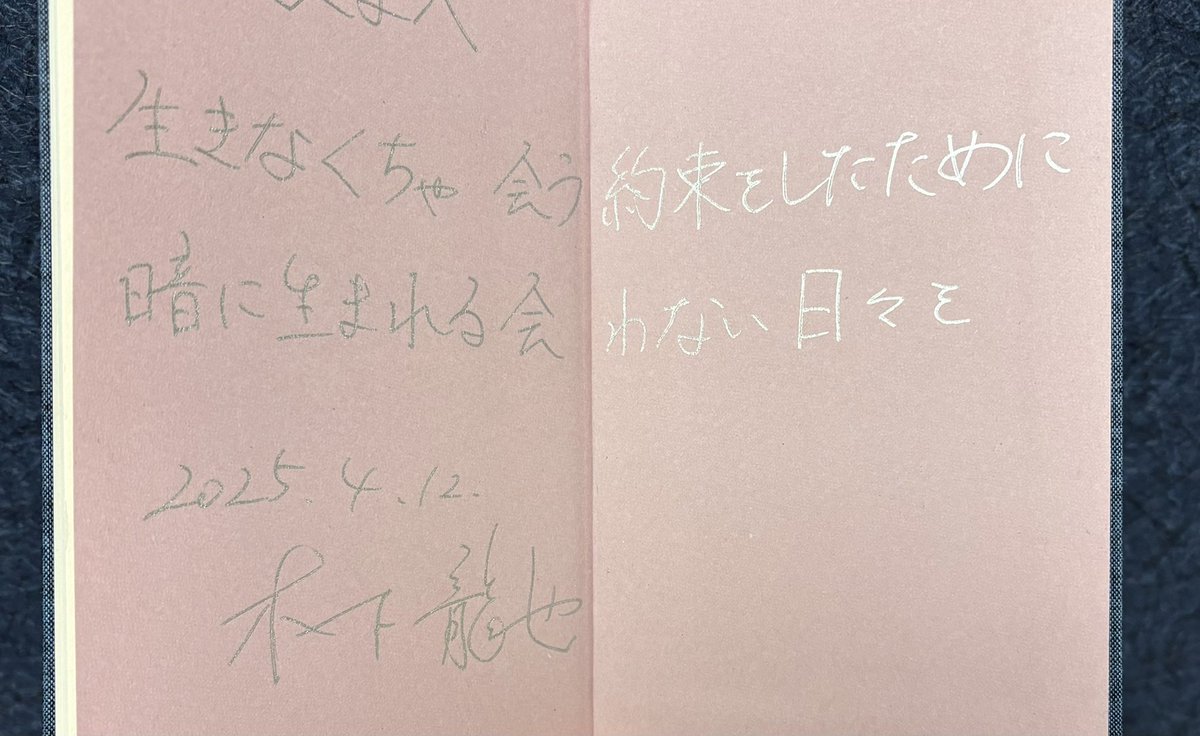 生きなくちゃ 会う約束をしたために
暗に生まれる会わない日々を
2025.4.12.
木下龍也